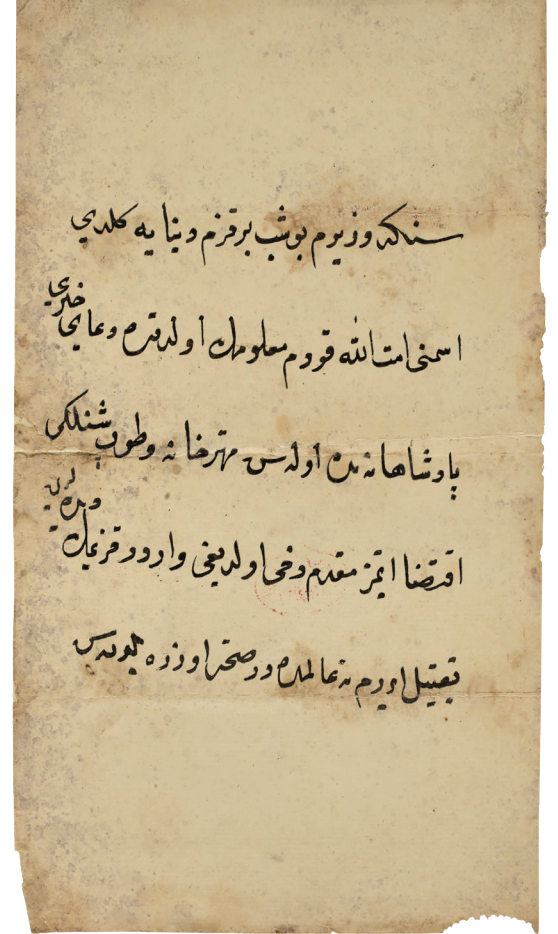 سنكه وزيرم بوشب بر قزم دنيايه كلدي
اسمنى امت الله قودم معلومك اولدقده دعاي خيري
پادشاهانه مده اوله سن مهترخانه وطوب شنلكى
اقتضا ايتمز مقدم دخى اولديغى واردر قزيمك ديده لرين
تقبيل ايدرم نه عالمده در اوزره